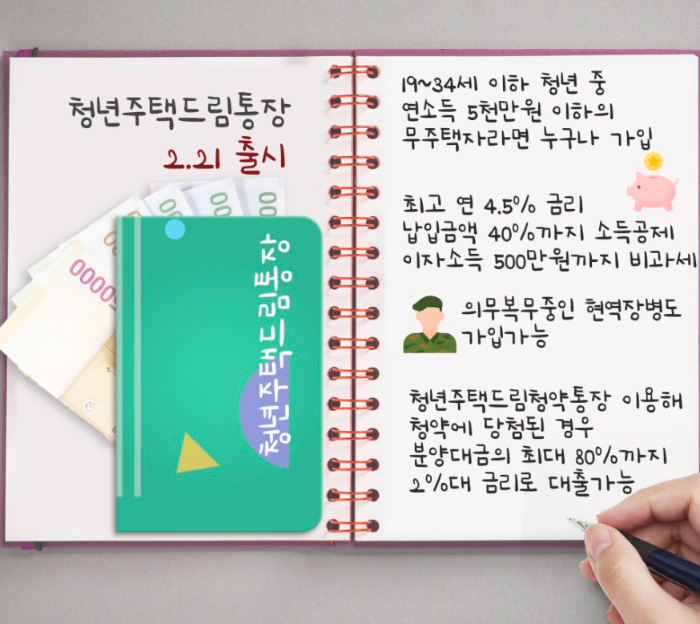 청년주택드림통장
2.21 출시
청년주택드림통장
19~34세 이하 청년 중
연소득 5천만원 이하의
무주택자라면 누구나 가입
최고 연 4.5% 금리
납입금액 40%까지 소득공제
이자소득 500만원까지 비과세
의무복무중인 현역장병도
가입가능
청년주택드림청약통장 이용해
청약에 당첨된 경우
분양대금의 최대 80%까지
2%대 금리로 대출가능